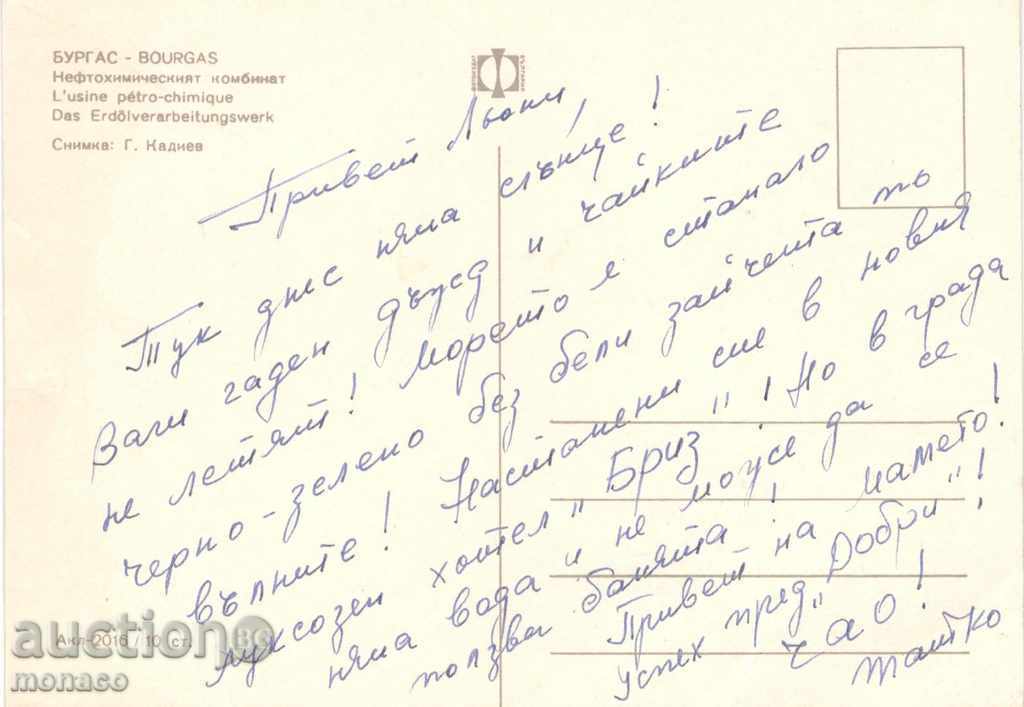 БУРГАС - BOURGAS
Нефтохимическият комбинат
L'usine pétro-chimique
Das Erdölverarbeitungswerk
Снимка: Г. Кадиев
Привет Льони,
Тук днес няма слънце!
Вали гаден дъжд и чайките
не летят! Морето е станало
черно-зелено без бели зайчета по
вълните! Настанени сме в новия
луксозен хотел "Бриз"! Но в града
няма вода и не може да се
ползва банята! Привет на мамето!
успех пред "Добри"!
чао!
Татко
Акл-2016 / 10 ст.
auction.BG
monaco